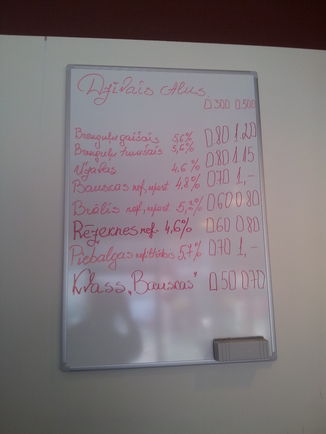 Dzīvais Alus.
0300 0500
Brenguļu gaišais 5,6% 080 120
Brenguļu tumšais 5,6% 080 115
Užavas 4,6% 070 1,-
Bauskas nef., npast 4,8% 060 080
Brālis nef., npast 5,2%
Rēzeknes nef. 4,6% 060 080
Piebalgas nefiltrētais 5,7% 070 1,-
Kvass „Bauskas" 050 070